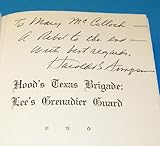 To Mary McCulloch —
A Rebel to the end —
With best regards,
Harold B. Simpson
Hood's Texas Brigade:
Lee's Grenadier Guard